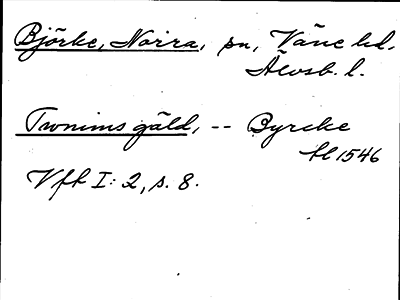 Björke, Norra, sn, Väne hd.
Älvsb. l.
Tronims gäld, -- Byrcke
hl 1546
Vfh I: 2, s. 8.